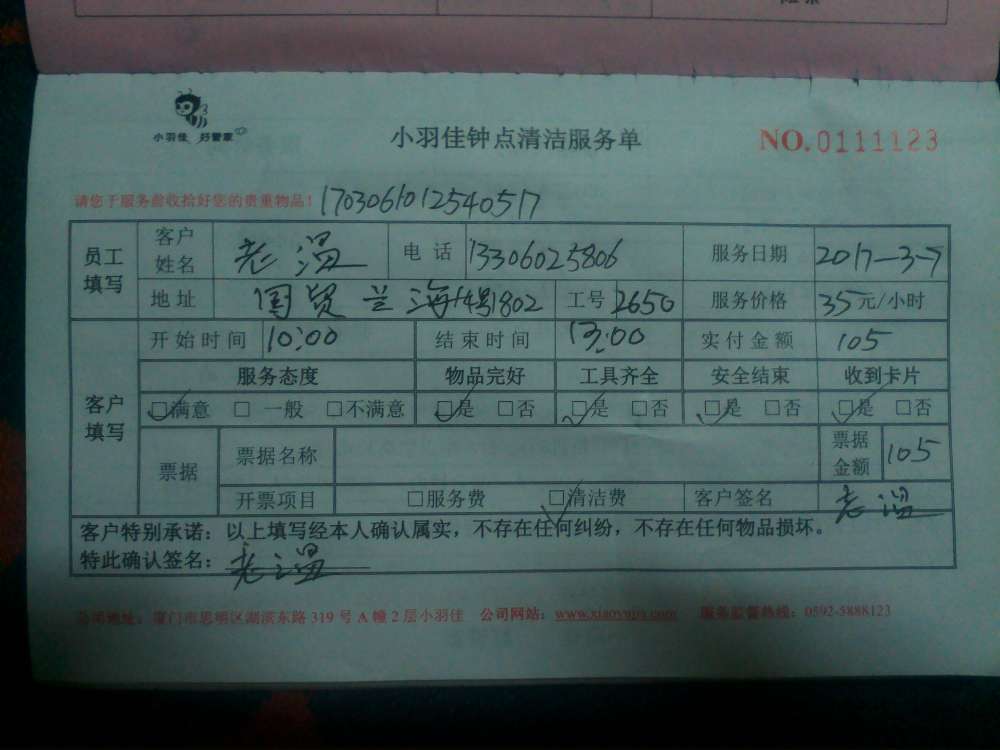 小羽佳 好管家
小羽佳钟点清洁服务单
NO.0111123
请您于服务前收拾好您的贵重物品！ 1703061012540517
员工填写 客户姓名 老温 电话 13306025806 服务日期 2017-3-7
地址 国贸兰海14号1802 工号 2650 服务价格 35元/小时
客户填写 开始时间 10:00 结束时间 13:00 实付金额 105
服务态度 物品完好 工具齐全 安全结束 收到卡片
☑满意 □一般 □不满意 ☑是 □否 ☑是 □否 ☑是 □否 ☑是 □否
票据 票据名称 票据金额 105
开票项目 □服务费 ☑清洁费 客户签名 老温
客户特别承诺：以上填写经本人确认属实，不存在任何纠纷，不存在任何物品损坏。
特此确认签名：老温
公司地址：厦门市思明区湖滨东路319号A幢2层小羽佳 公司网站： 服务监督热线：0592-5888123